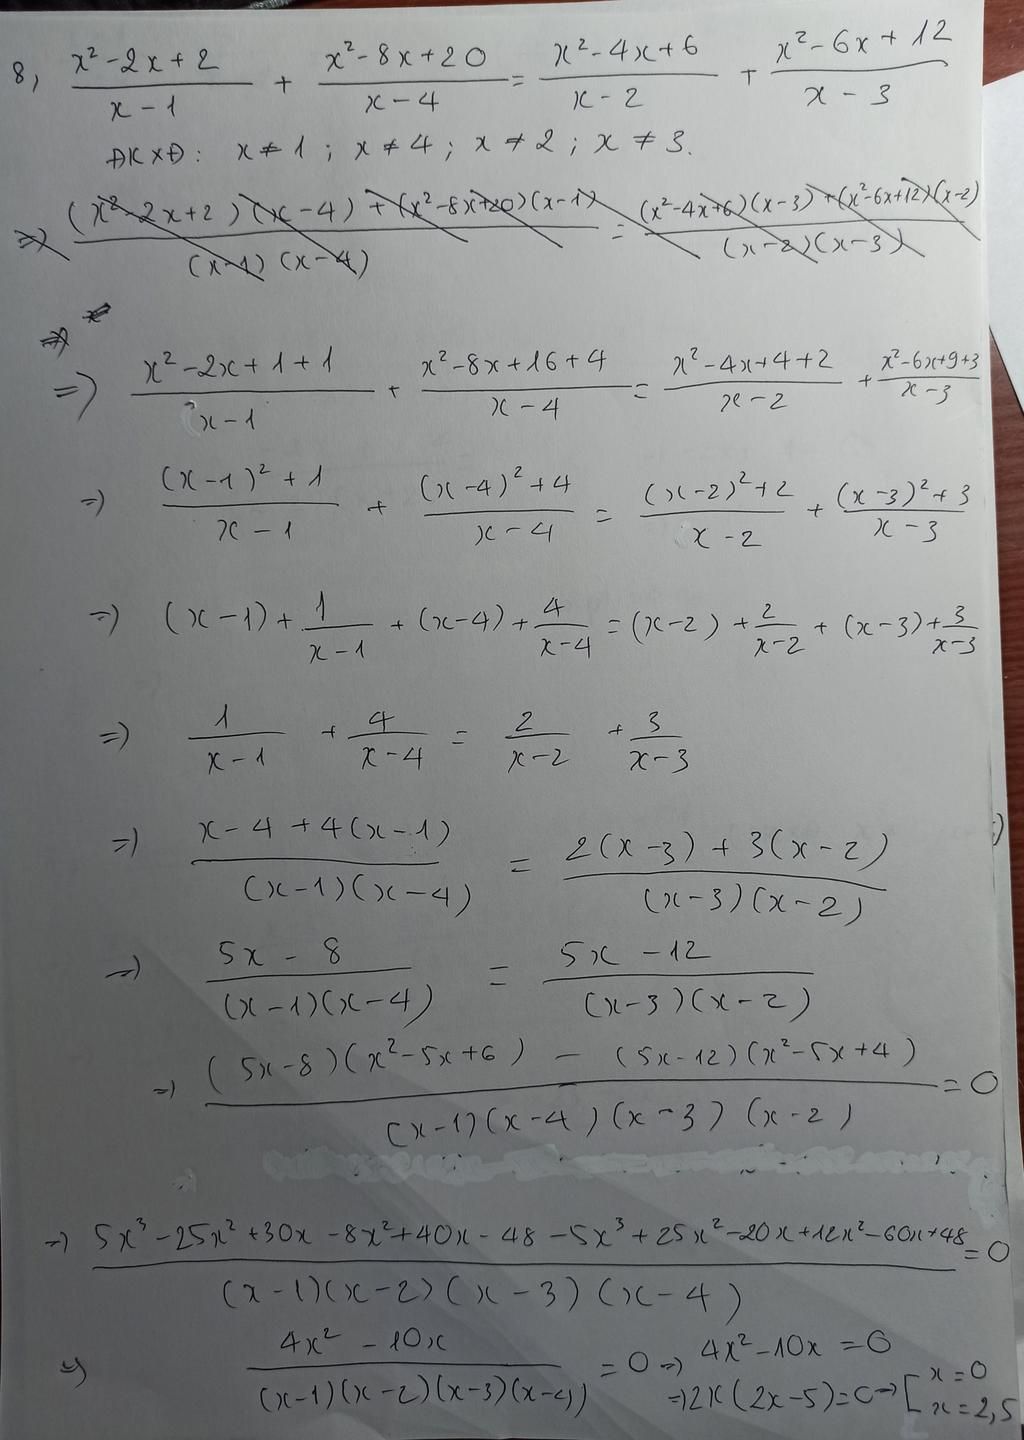 8, (x² - 2x + 2)/(x - 1) + (x² - 8x + 20)/(x - 4) = (x² - 4x + 6)/(x - 2) + (x² - 6x + 12)/(x - 3)
ĐKXĐ: x ≠ 1 ; x ≠ 4 ; x ≠ 2 ; x ≠ 3.
=> ((x² - 2x + 2)(x - 4) + (x² - 8x + 20)(x - 1))/((x - 1)(x - 4)) = ((x² - 4x + 6)(x - 3) + (x² - 6x + 12)(x - 2))/((x - 2)(x - 3))
=> (x² - 2x + 1 + 1)/(x - 1) + (x² - 8x + 16 + 4)/(x - 4) = (x² - 4x + 4 + 2)/(x - 2) + (x² - 6x + 9 + 3)/(x - 3)
=> ((x - 1)² + 1)/(x - 1) + ((x - 4)² + 4)/(x - 4) = ((x - 2)² + 2)/(x - 2) + ((x - 3)² + 3)/(x - 3)
=> (x - 1) + 1/(x - 1) + (x - 4) + 4/(x - 4) = (x - 2) + 2/(x - 2) + (x - 3) + 3/(x - 3)
=> 1/(x - 1) + 4/(x - 4) = 2/(x - 2) + 3/(x - 3)
=> (x - 4 + 4(x - 1))/((x - 1)(x - 4)) = (2(x - 3) + 3(x - 2))/((x - 3)(x - 2))
=> (5x - 8)/((x - 1)(x - 4)) = (5x - 12)/((x - 3)(x - 2))
=> ((5x - 8)(x² - 5x + 6) - (5x - 12)(x² - 5x + 4))/((x - 1)(x - 4)(x - 3)(x - 2)) = 0
=> (5x³ - 25x² + 30x - 8x² + 40x - 48 - 5x³ + 25x² - 20x + 12x² - 60x + 48)/((x - 1)(x - 2)(x - 3)(x - 4)) = 0
=> (4x² - 10x)/((x - 1)(x - 2)(x - 3)(x - 4)) = 0 => 4x² - 10x = 0
=> 2x(2x - 5) = 0 => [ x = 0
x = 2,5